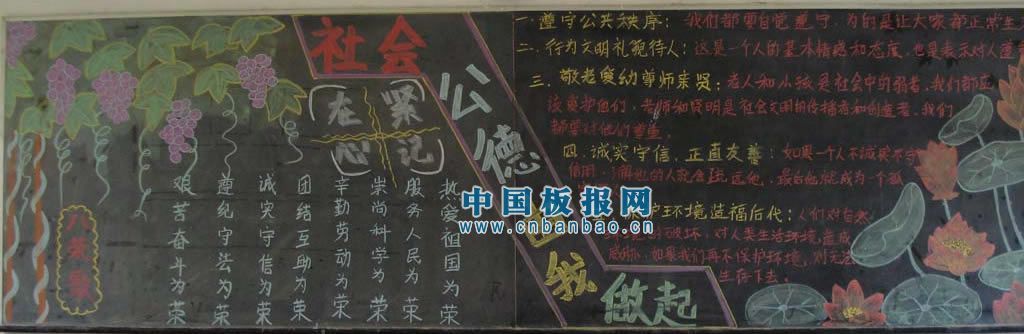 社会
公德
由我
做起
紧记
在心
热爱祖国为荣
服务人民为荣
崇尚科学为荣
辛勤劳动为荣
团结互助为荣
诚实守信为荣
遵纪守法为荣
艰苦奋斗为荣
八荣
一.遵守公共秩序：我们都要自觉遵守，为的是让大家都正常生
二.行为文明礼貌待人：这是一个人的基本情感和态度，也是表示对人
三.敬老爱幼尊师亲贤：老人和小孩是社会中的弱者，我们都应
该爱护他们，老师和贤明是社会文明的传播者和创造者，我们
都要对他们尊重。
四.诚实守信，正直友善：如果一个人不诚实不守
信用，他的人就会远他，最后他就成为一个孤
护环境造福后代：人们对自然
破坏，对人类生活环境造成
威胁，如果我们再不保护环境，对无法
生存下去。
中国板报网
www.cnbanbao.cn